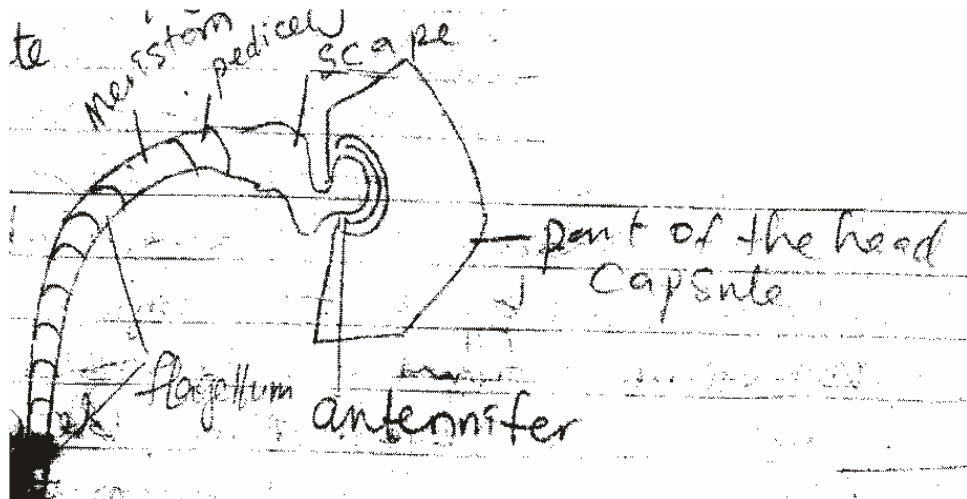 te
Meristom
pedicel
scape
part of the head
Capsule
flagellum
antennifer